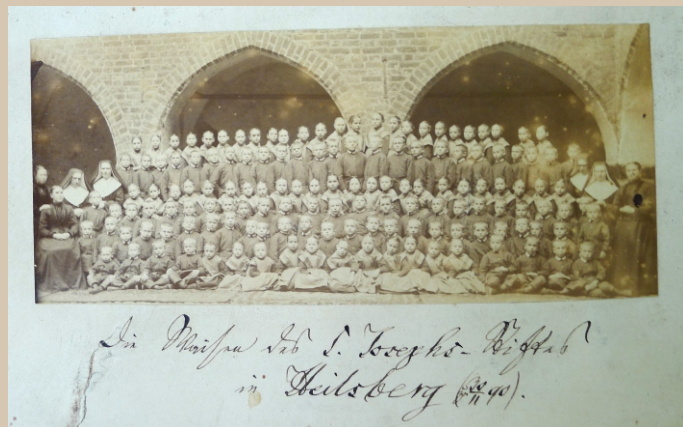 Die Waisen des S. Josephs-Stiftes
in Heilsberg (20/11 90).